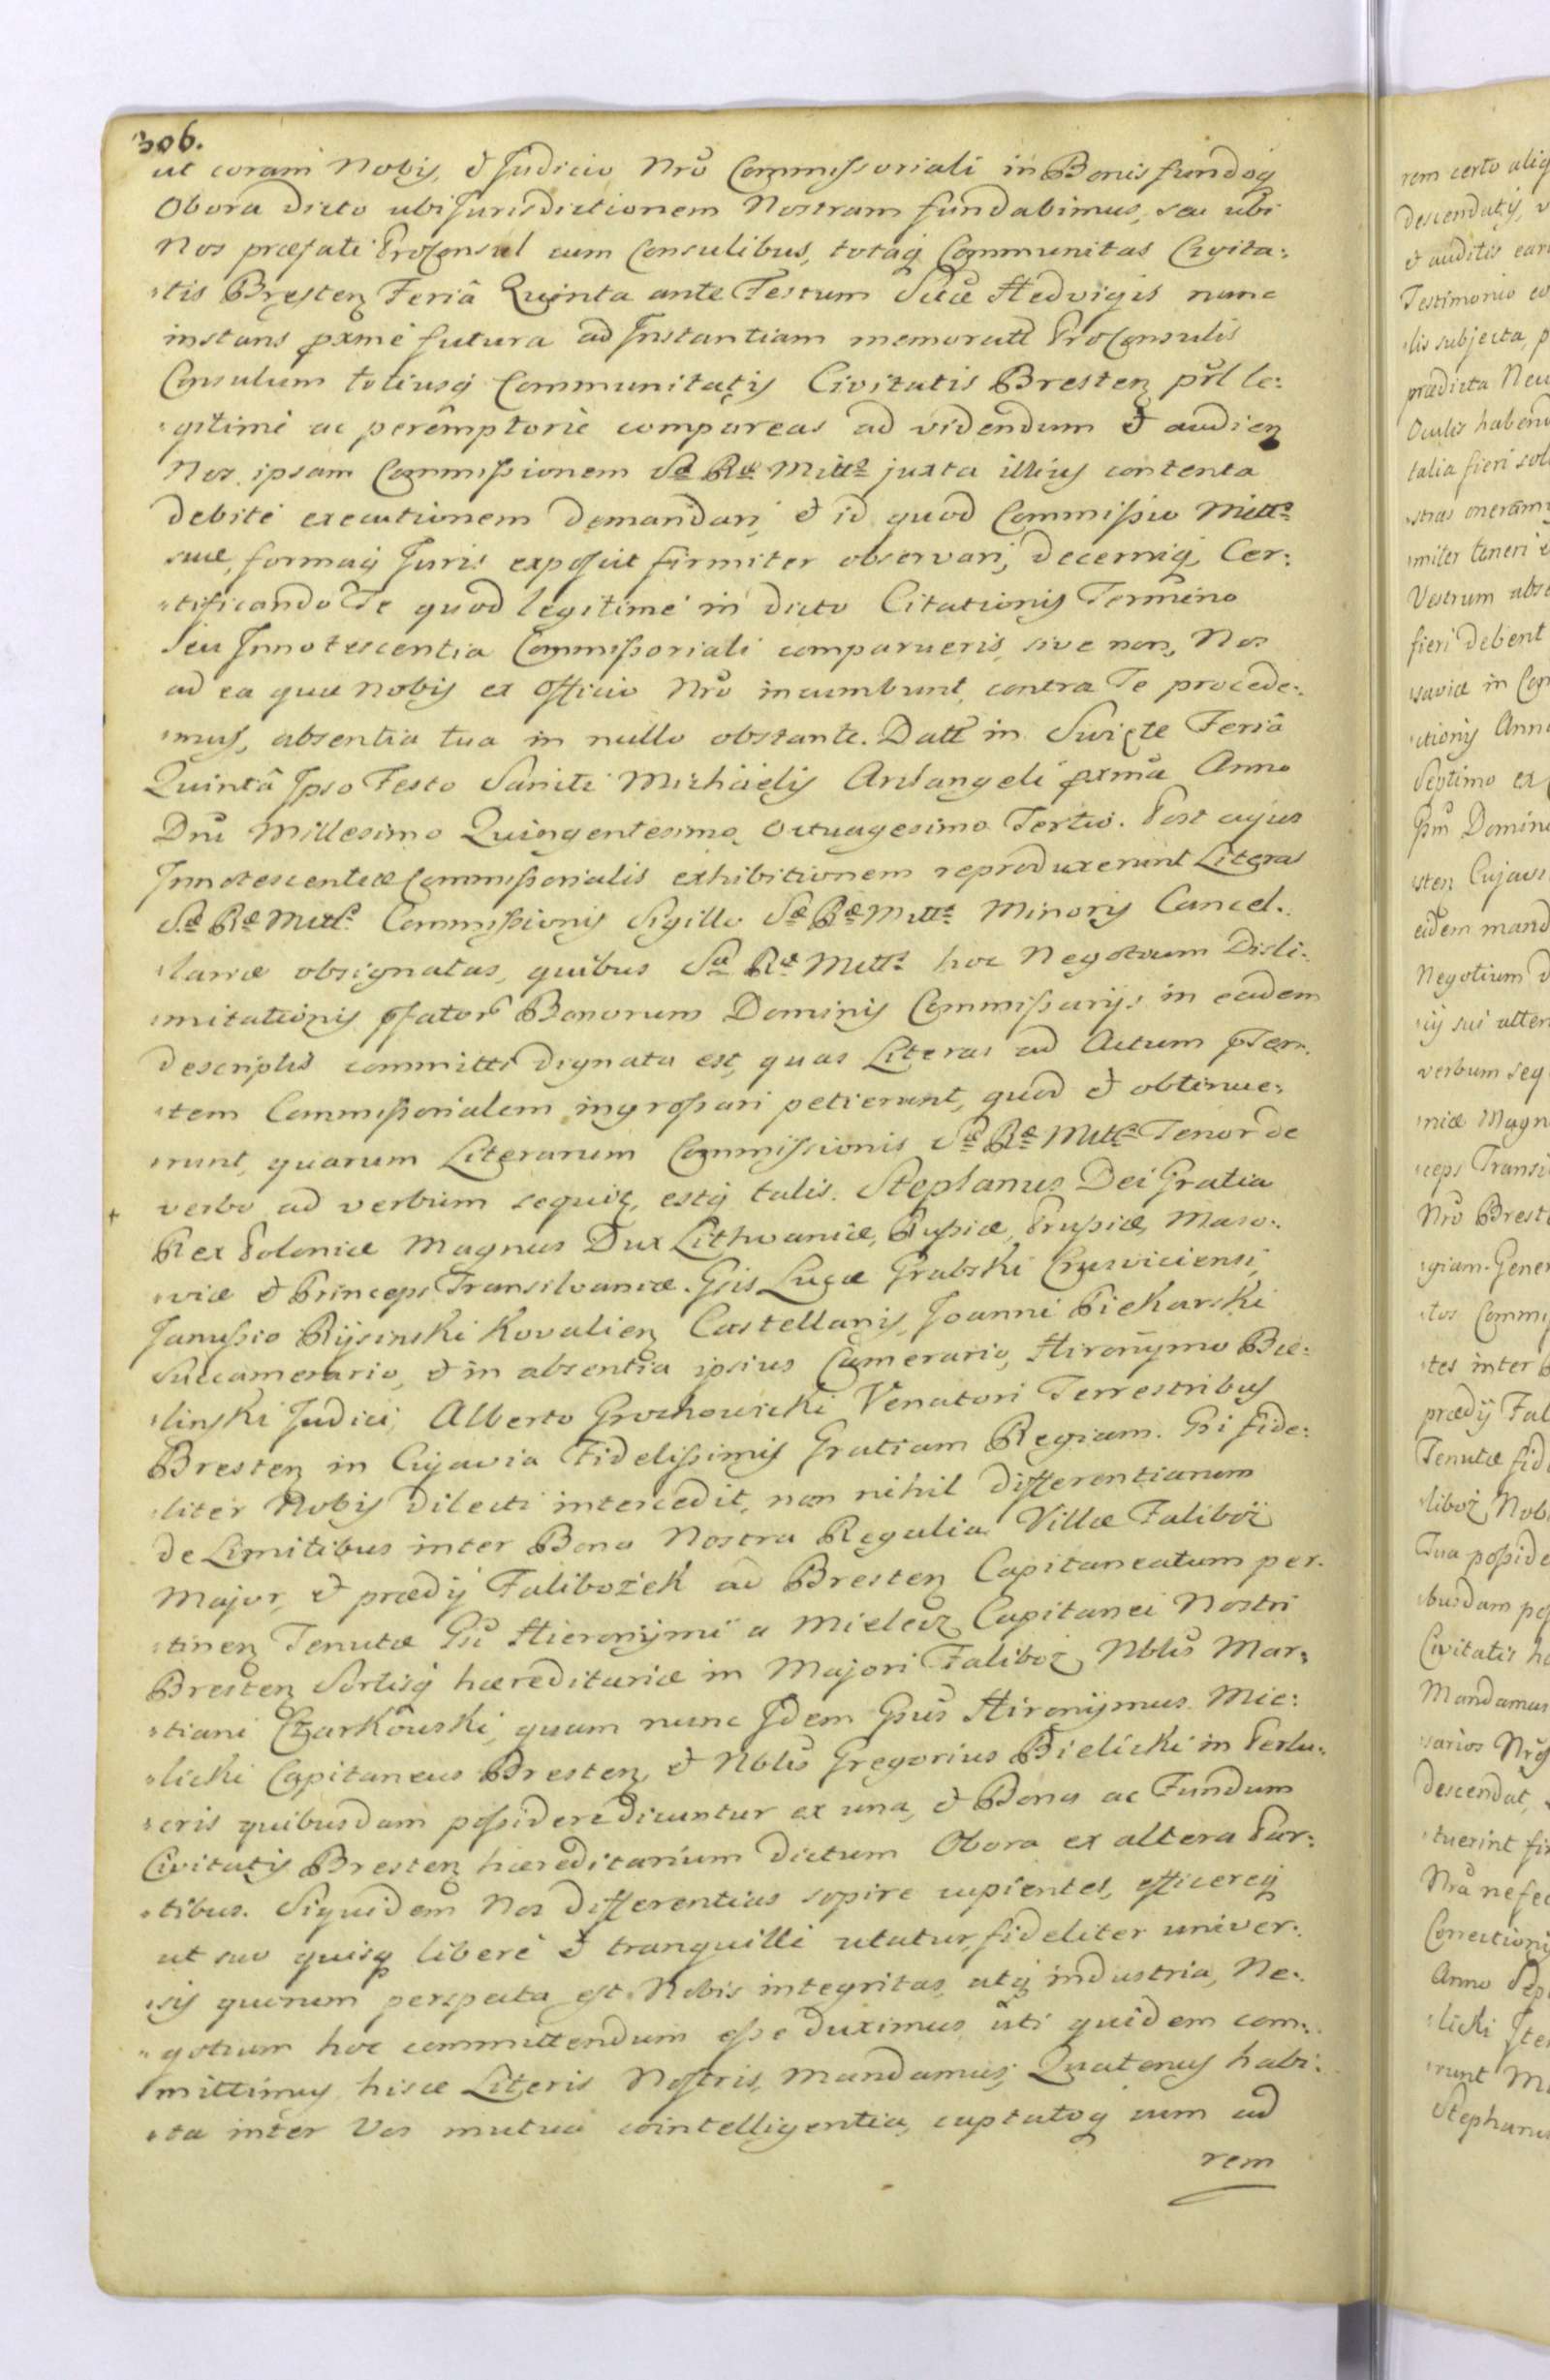 306.
ut coram Nobis, & Judicio Nrõ Commissoriali in Bonis fundoq
Obora dicto ubi Jurisdictionem Nostram fundabimus, seu ubi
Nos præfati ProConsul cum Consulibus, totaq Communitas Civita:
:tis Bresten Feriâ Quinta ante Festum Sctæ Hedvigis nunc
instans pxmè futura ad Instantiam memorati ProConsulis
Consulum totiusq Communitatis Civitatis Bresten pñl le:
:gitimè ac perêmptoriè compareas ad videndum & audien
Nos ipsam Commissionem Sæ Ræ Mttis juxta illius contenta
debitè executionem demandari, & id quod Commissio Mttis
suæ, formaq Juris exposcit firmiter observari, decerniq, Cer:
:tificando Te quod legitimè in dicto Citationis Termino
seu Innotescentia Commissoriali comparueris, sive non, Nos
ad ea quæ nobis ex Officio Nrõ incumbunt, contra Te procede:
:mus, absentia tua in nullo obstante. Datt in Swięte Feriâ
Quintâ Ipso Festo Sancti Michaelis Archangeli pxmâ Anno
Dni Millesimo Quingentesimo Octuagesimo Tertio. Post cujus
Innotescentiæ Commissorialis exhibitionem reproduxerunt Literas
Sæ Ræ Mttis Commissionis Sigillo Sæ Ræ Mttis Minoris Cancel.
:lariæ obsignatas, quibus Sæ Ræ Mttis hoc Negotium Disli:
:mitationis pfator Bonorum Dominis Commissarijs in eadem
descriptis committi dignata est, quas Literas ad Actum pñen
:tem Commissorialem ingrossari petierunt, quod & obtinue:
:runt, quarum Literarum Commissionis Sæ Ræ Mttis Tenor de
verbo ad verbum sequit, estq talis. Stephanus Dei Gratia
Rex Poloniæ Magnus Dux Lithvaniæ, Russiæ, Prussiæ, Maso:
:viæ & Princeps Transilvaniæ. Gsis Lucæ Grabski Crusviciensi,
Janussio Rijsinski Kovalien Castellanis, Joanni Piekarski
Succamerario, & in absentia ipsius Camerario, Hironymo Bie:
:linski Judici, Alberto Grochowicki Venatori Terrestribus
Bresten in Cujavia Fidelissimis Gratiam Regiam. Gsi fide:
:liter Nobis dilecti intercedit, non nihil differentiarum
de Limitibus inter Bona Nostra Regalia Villæ Faliboż
Major, & prædij Falibożek ad Bresten Capitaneatum per.
:tinen Tenutæ Gsi Hieronijmi a Mielecz Capitanei Nostri
Bresten Sortisq hæreditariæ in Majori Faliboż, Nblis Mar:
:tiani Czarkowski, quam nunc Idem Gsus Hironijmus Mie:
:licki Capitaneus Bresten, & Nblis Gregorius Bielicki in Perlu:
:cris quibusdam possidere dicuntur ex una, & Bona ac Fundum
Civitatis Bresten hæreditarium dictum Obora ex altera Par:
:tibus. Siquidem Nos differentias sopire cupientes, efficereq
ut suo quisq liberè & tranquillè utatur, fideliter univer:
:sis quorum perspecta est Nobis integritas, atq industria, Ne:
:gotium hoc committendum esse duximus, uti quidem com:
:mittimus hisce Literis Nostris, mandamus, Quatenus habi:
:ta inter Vos mutua cointelligentia, captatoq cum ad
rem
rem certo aliq
descendatis, v
& auditis ear
Testimonio co
:lis subjecta, p
prædicta Neu
Oculis habend
talia fieri sol
:stras oneram
:miter teneri &
Vestrum abse
fieri debent
:saviæ in Con
:ctionis Anno
Septimo ex
Gsm Domin
:sten Cujavi
eidem mand
Negotium d
:ij sui atten
verbum seq
:niæ Magn
:ceps Transi
Nrõ Brest
:giam. Gener
:tos Commis
:tes inter B
prædij Fal
Tenutæ fid
:liboż Nob
Tua posside
:busdam pos
Civitatis hæ
Mandamus
:sarios Nrõs
descendat,
:tuerint fir
Nrâ ne fec
Correctionis
Anno Dep
:licki Ite
:runt Ma
Stephanus